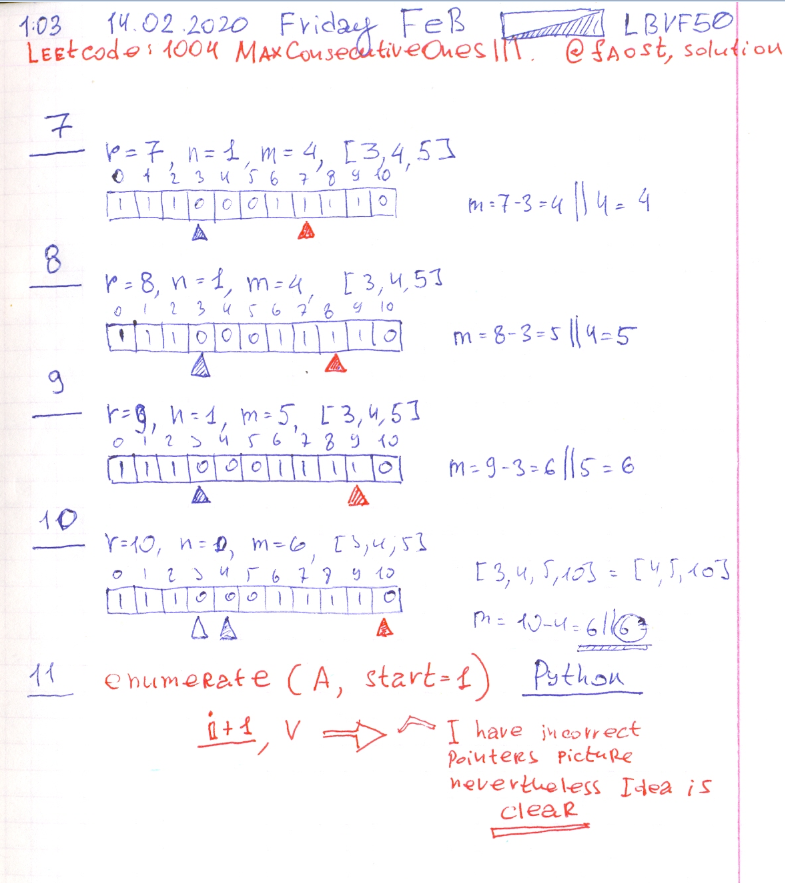 1:03 14.02.2020 Friday FeB LBVF50
LEEtcode: 1004 MAxConsecutiveOnes III. @fAOst, solution
7
r=7, n=1, m=4, [3,4,5]
0 1 2 3 4 5 6 7 8 9 10
1 1 1 0 0 0 1 1 1 1 0
m=7-3=4 || 4 = 4
8
r=8, n=1, m=4, [3,4,5]
0 1 2 3 4 5 6 7 8 9 10
1 1 1 0 0 0 1 1 1 1 0
m=8-3=5 || 4=5
9
r=9, n=1, m=5, [3,4,5]
0 1 2 3 4 5 6 7 8 9 10
1 1 1 0 0 0 1 1 1 1 0
m=9-3=6 || 5 = 6
10
r=10, n=0, m=6, [3,4,5]
0 1 2 3 4 5 6 7 8 9 10
1 1 1 0 0 0 1 1 1 1 0
[3,4,5,10] = [4,5,10]
m= 10-4=6 || 6
11 enumeRate (A, start=1) Python
i+1, V
I have incorrect
pointeRs picture
nevertheless Idea is
cleaR